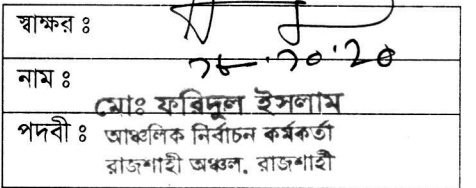 স্বাক্ষর ঃ
নাম ঃ
মোঃ ফরিদুল ইসলাম
পদবী ঃ আঞ্চলিক নির্বাচন কর্মকর্তা
রাজশাহী অঞ্চল, রাজশাহী